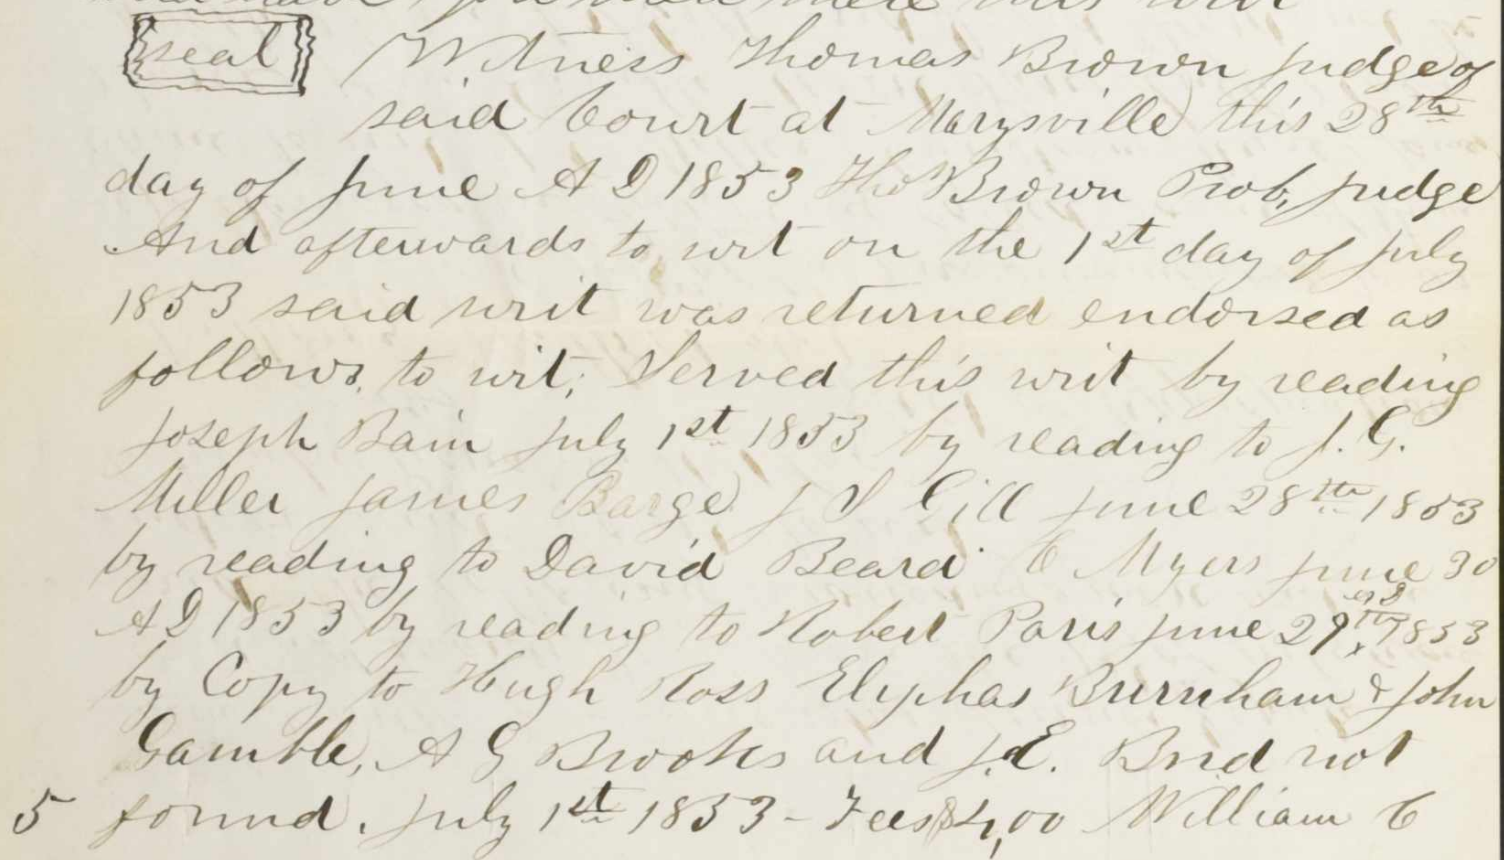 seal Witness Thomas Brown judge of
said Court at Marysville this 28th
day of June A D 1853 Thos Brown Prob, judge
And afterwards to wit on the 1st day of July
1853 said writ was returned endorsed as
follows, to wit; Served this writ by reading
Joseph Bain July 1st 1853 by reading to J. G.
Miller James Barge J S Gill June 28th 1853
by reading to David Beard C Myers June 30
A D 1853 by reading to Robert Paris June 29th 1853
by Copy to Hugh Ross Elyphas Burnham & John
Gamble, A G Brooks and J. E. Bird not
5 found. July 1st 1853 - Fees $4,00 William C